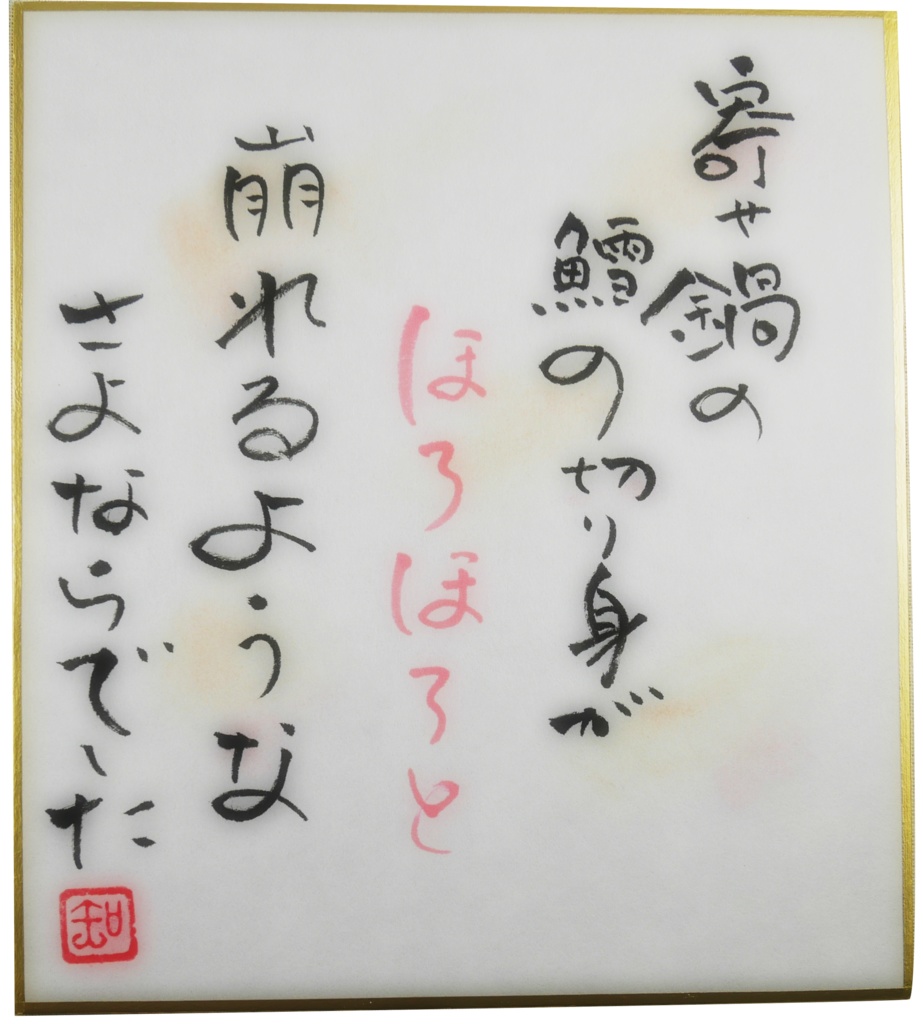 寄せ鍋の
鱈の切り身が
ほろほろと
崩れるような
さよならでした
知